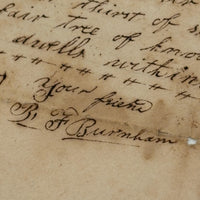 thirst of
fair tree of know
dwells within
" " " " " " "
Your friend
B F Burnham